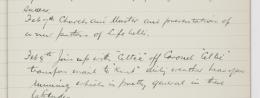 Feb 7th Church and Muster and presentation of
a new pattern of Life belts.
Feb 9th Join up with "Celtic" off Coronel "Celtic"
transfers mail to "Kent" dirty weather heavy
running which is pretty general in these
latitudes